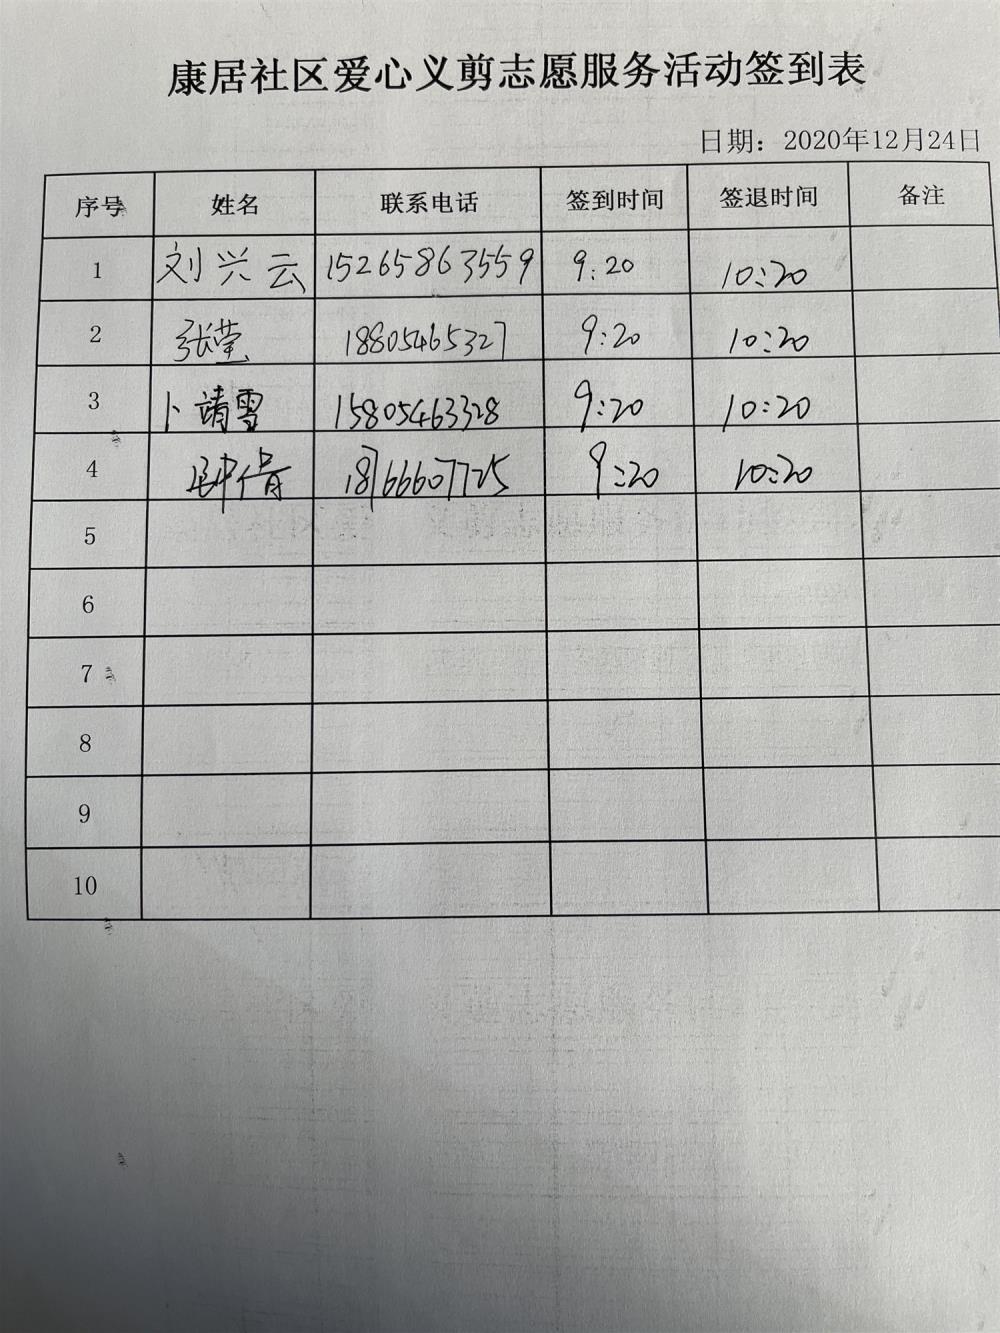 康居社区爱心义剪志愿服务活动签到表
日期：2020年12月24日
序号 姓名 联系电话 签到时间 签退时间 备注
1 刘兴云 15265863559 9:20 10:20
2 张莹 18805465327 9:20 10:20
3 卜靖雪 15805463328 9:20 10:20
4 倩 18766607725 9:20 10:20
5
6
7
8
9
10